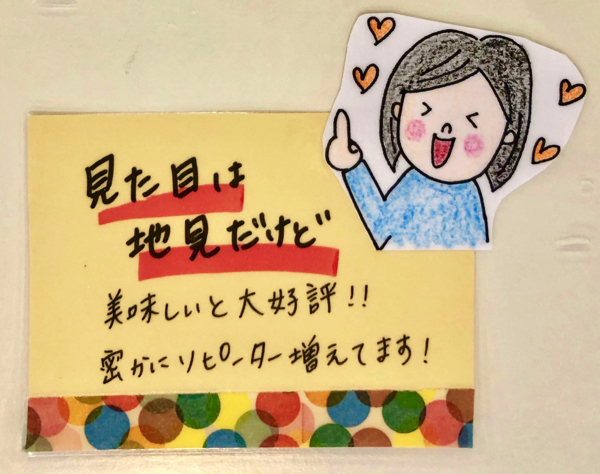 見た目は
地見だけど
美味しいと大好評!!
密かにリピーター増えてます!